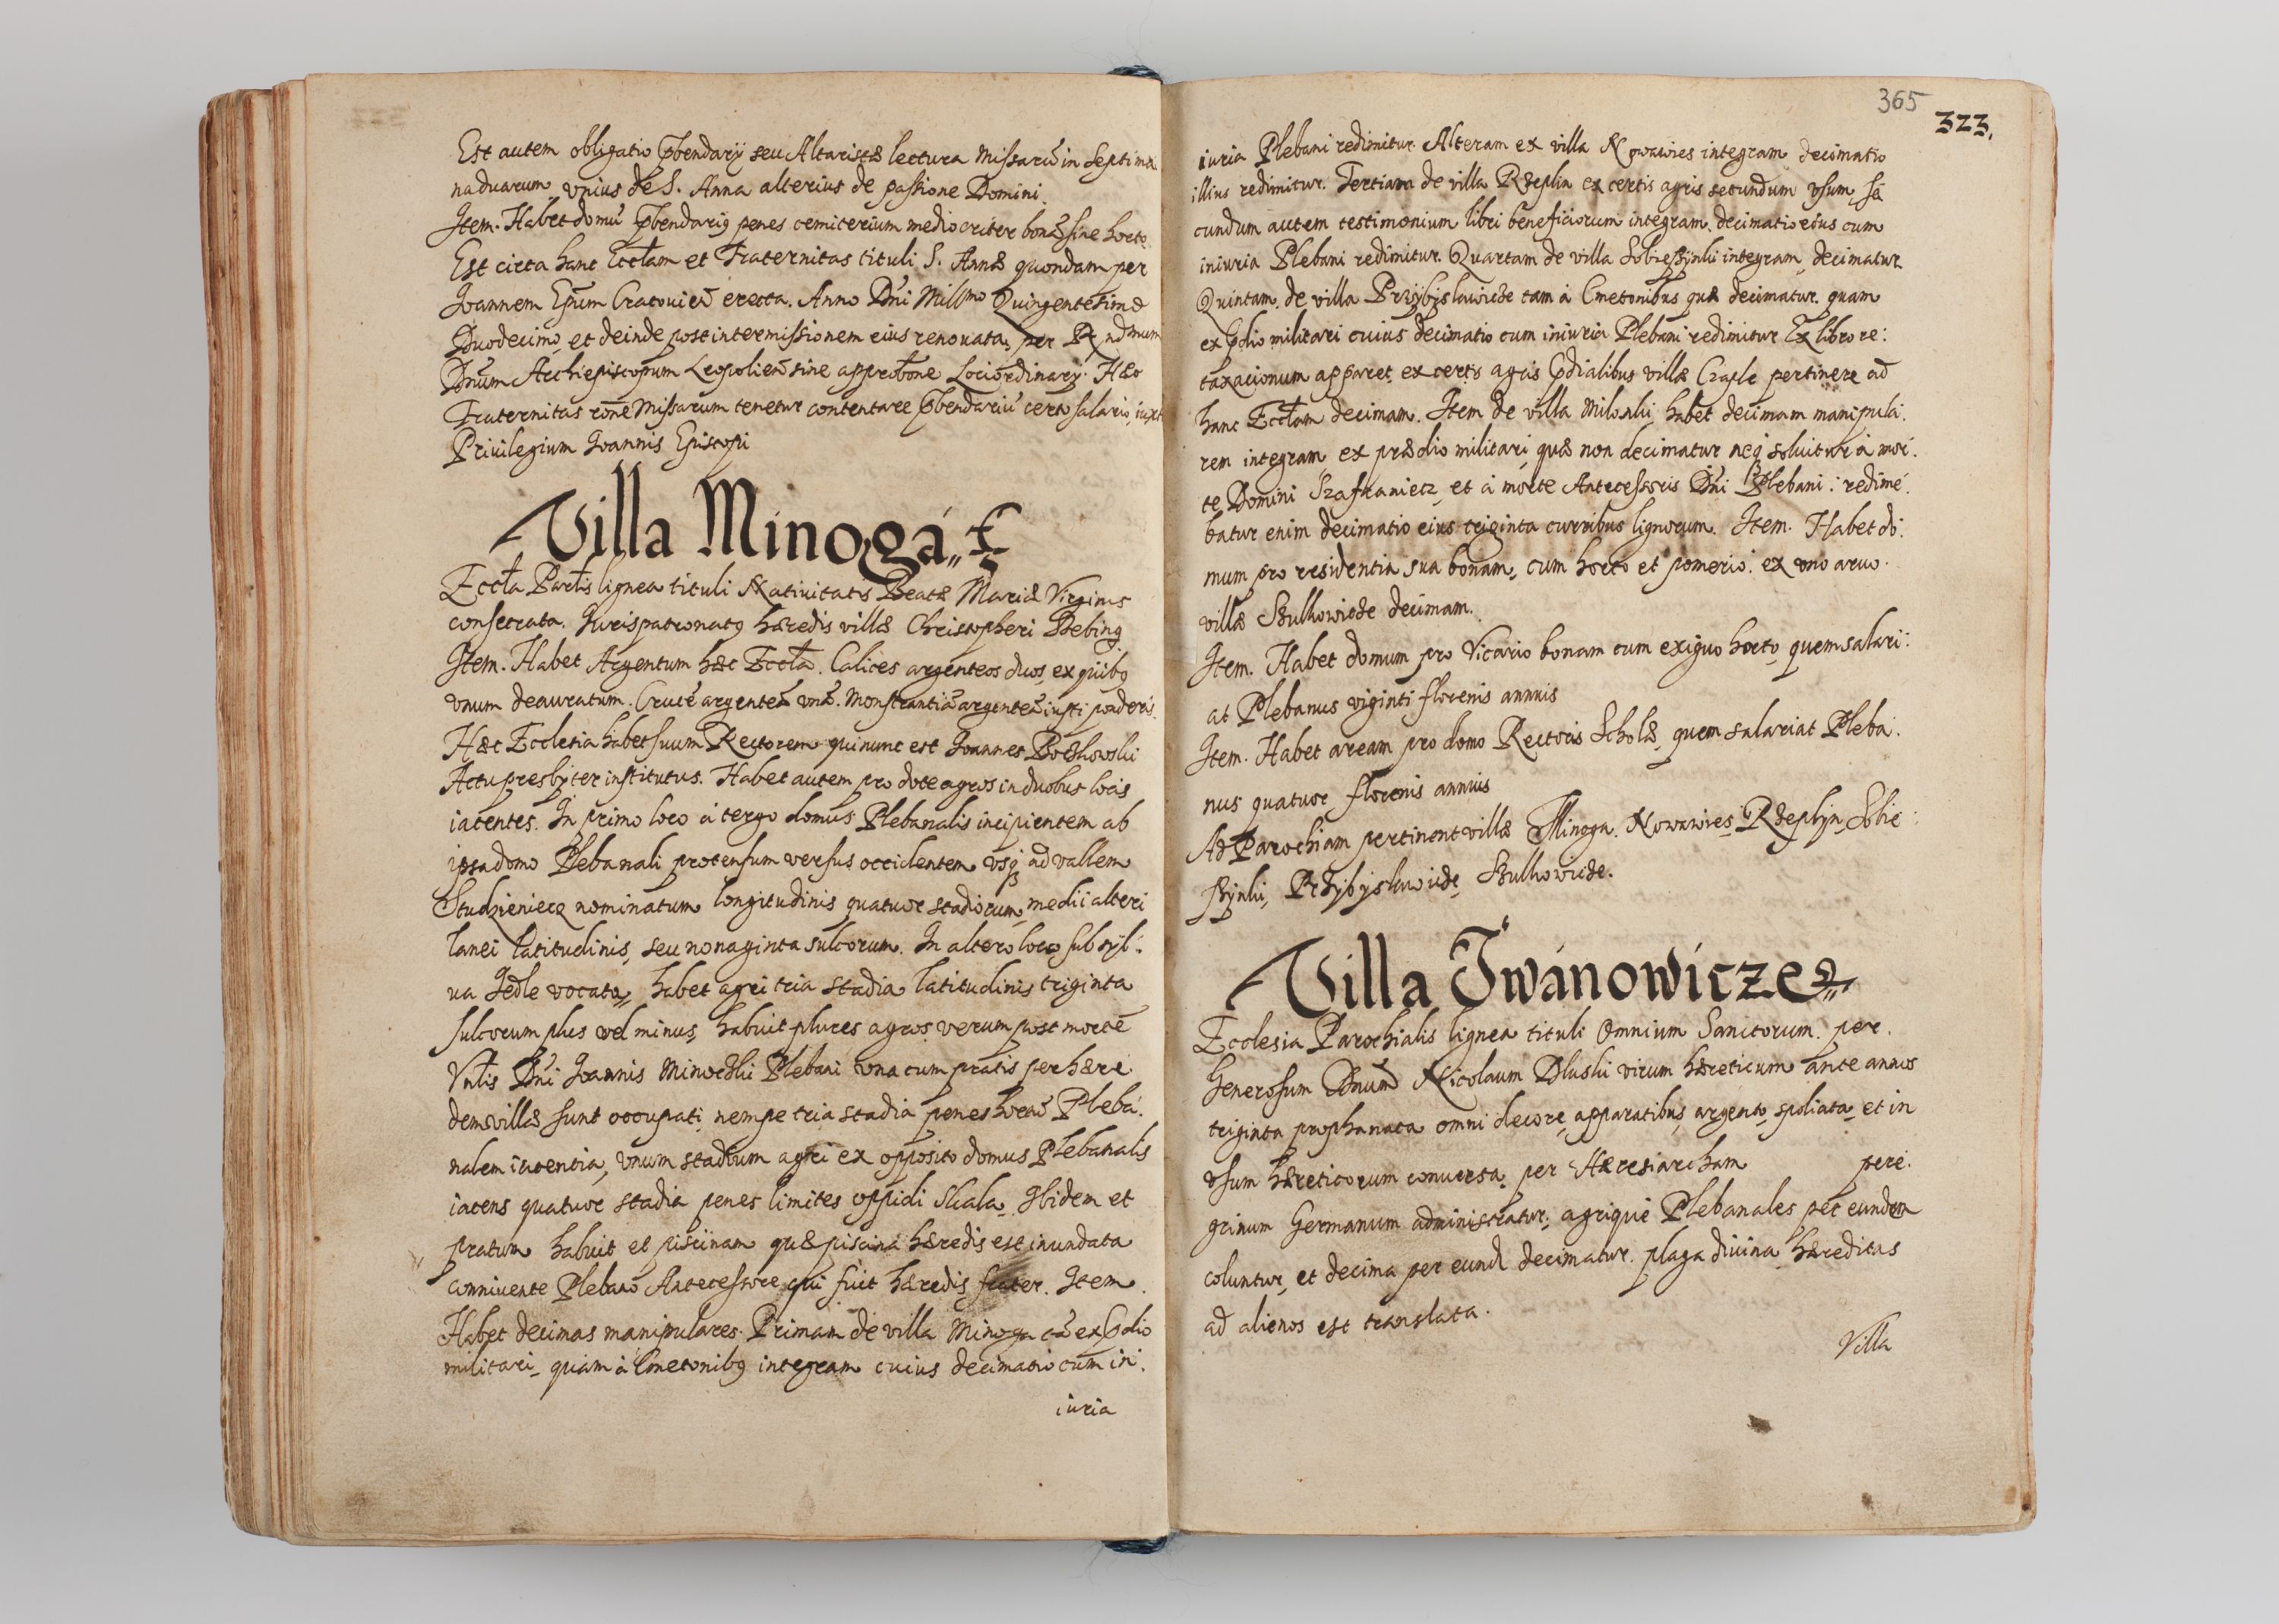 Est autem obligatio Pbendarij seu Altaristæ lectura Missarū in septima
na duarum, vnius de S. Anna alterius de passione Domini.
Item. Habet domū Pbendarij penes cemiterium mediocriter bonā sine horto
Est circa hanc Eccłam et Fraternitas tituli S. Annæ quondam per
Joannem Epūm Cracovień erecta. Anno Dni Millmo Quingentesimo
Duodecimo, et deinde post intermissionem eius renouata, per Rndmum
Dnūm Archiepiscopum Leopolień sine approbtone Loci ordinarij. Hæc
Fraternitas rōne Missarum tenetur contentare Pbendariū certo salario, iuxt
Priuilegium Joannis Episcopi
Villa Minogá
Eccła Partis lignea tituli Natiuitatis Beatæ Mariæ Virginis
consecrata. Jurispatronatq hæredis villæ Christopheri Bebing
Item. Habet Argentum hæc Eccła. Calices argenteos duos, ex quibq
vnum deauratum. Crucē argenteā vnā. Monstrantiā argenteā iusti ponderis.
Hæc Ecclesia habet suum Rectorem qui nunc est Joannes
Actu presbyter institutus. Habet autem pro dote agros in duobus locis
iacentes. In primo loco à tergo domus Plebanalis incipientem ab
ipsa domo Plebanali protensum versus occidentem vsq ad vallem
Studzieniecz nominatum longitudinis quatuor stadiorum, medii alteri
lanei latitudinis, seu nonaginta sulcorum. In altero loco sub syl:
ua Jedle vocata, habet agri tria stadia latitudinis triginta
sulcorum plus vel minus, habuit plures agros verum post mortē
Vntis Dni Joannis Minoczki Plebani vna cum pratis per hære
dem villæ sunt occupati, nempe tria stadia penes Plebá:
nalem iacentia, vnum stadium agri ex opposito domus Plebanalis
iacens quatuor stadia penes limites oppidi Skala, Ibidem et
pratum habuit et piscinam quæ piscina hæredis est inundata
conniuente Plebano Antecessore qui fuit hæredis frater. Item.
Habet decimas manipulares. Primam de villa Minoga tā ex Pdio
militari, quàm à Cmetonibq integram cuius decimatio cum in:
iuria
365
323.
iuria Plebani redimitur. Alteram ex villa Nowawies integram decimatio
illius redimitur. Tertiam de villa Rzeplin ex certis agris secundum vsum, sæ
cundum autem testimonium libri beneficiorum integram, decimatio eius cum
iniuria Plebani redimitur. Quartam de villa Sobieszynki integram, decimatur
Quintam, de villa Przybyslawicze tam à Cmetonibus quæ decimatur. quam
ex Pdio militari cuius decimatio cum iniuria Plebani redimitur Ex libro re:
taxacionum apparet, ex certis agris Pdialibus villæ Czaple pertinere ad
hanc Eccłam decimam. Item de villa Milonki, habet decimam manipula:
rem integram ex prædio militari, quæ non decimatur neq soluitur à mor:
te Domini Szafraniecz, et à morte Antecessoris Dni Plebani: redime:
batur enim decimatio eius triginta curribus lignorum. Item. Habet do:
mum pro residentia sua bonam, cum horto et pomerio. ex vno aruo.
villæ Szulkowicze decimam.
Item. Habet domum pro Vicario bonam cum exiguo horto, quem salari:
at Plebanus viginti florenis annuis
Item. Habet aream pro domo Rectoris Scholæ, quem salariat Pleba:
nus quatuor florenis annuis
Ad Parochiam pertinent villæ Minoga. Nowawies, Rzeplyn, Sobie:
szynki, Przybyslawicze, Szulkowicze.
Villa Jwánowicze
Ecclesia Parochialis lignea tituli Omnium Sanctorum. per.
Generosum Dnūm Nicolaum Dluski virum hæreticum ante annos
triginta prophanata omni decore, apparatibus, argento, spoliata, et in
vsum hæreticorum conuersa, per Hæresiarcham pere:
grinum Germanum administratur, agrique Plebanales per eundem
coluntur, et decima per eund decimatur. plaga diuina, hæreditas
ad alienos est translata.
Villa